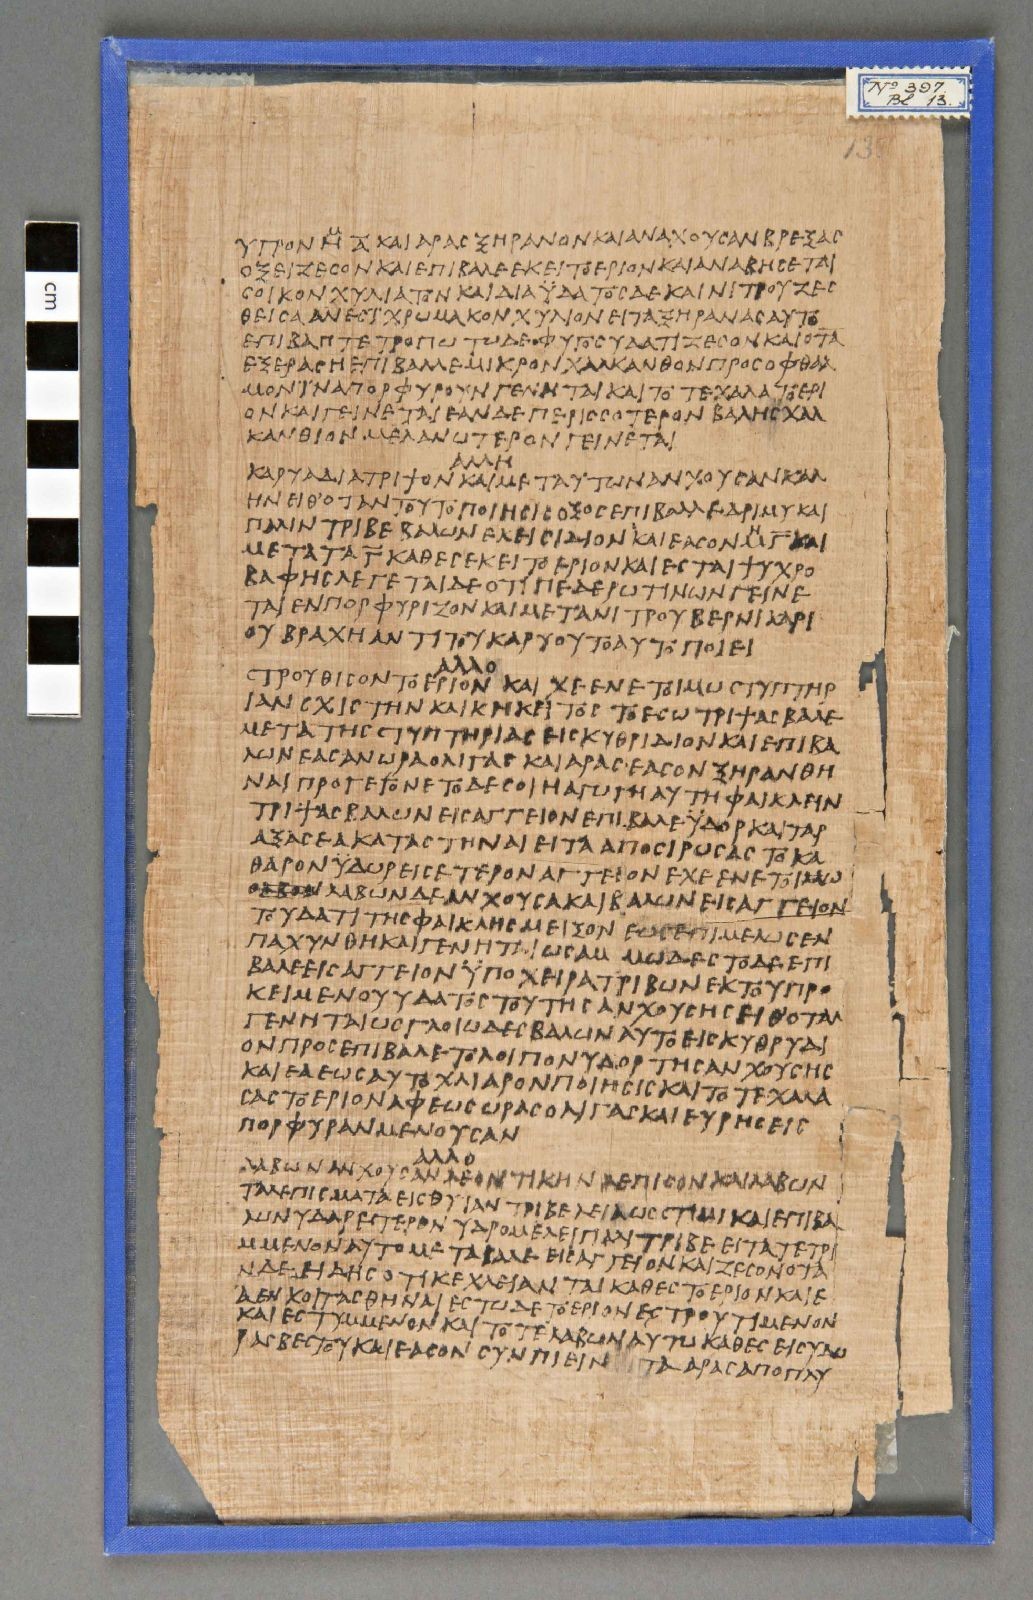 Nº 397.
Bl. 13.
13
ΥΠΡΟΝ Η Δ ΚΑΙ ΑΡΑΣ ΞΗΡΑΝΟΝ ΚΑΙ ΑΝΑΧΟΥΣΑΝ ΒΡΕΞΑΣ
ΟΞΕΙ ΖΕΣΟΝ ΚΑΙ ΕΠΙΒΑΛΕ ΕΚΕΙ ΤΟ ΕΡΙΟΝ ΚΑΙ ΑΝΑΒΗΣΕΤΑΙ
ΣΟΙ ΚΟΝΧΥΛΙΑΤΟΝ ΚΑΙ ΔΙΑ ΫΔΑΤΟΣ ΔΕ ΚΑΙ ΝΙΤΡΟΥ ΖΕΣ
ΘΕΙΣΑ ΑΝΕΣΙ ΧΡΩΜΑ ΚΟΝΧΥΛΙΟΝ ΕΙΤΑ ΞΗΡΑΝΑΣ ΑΥΤΟ
ΕΠΙΒΑΠΤΕ ΤΡΟΠΩ ΤΩΔΕ ΦΥΓΟΣ ΥΔΑΤΙ ΖΕΣΟΝ ΚΑΙ ΟΤΑ
ΕΞΕΡΑΣΗ ΕΠΙΒΑΛΛΕ ΜΙΚΡΟΝ ΧΑΛΚΑΝΘΟΝ ΠΡΟΣ ΟΦΘΑΛ
ΜΟΝ ΪΝΑ ΠΟΡΦΥΡΟΥΝ ΓΕΝΗΤΑΙ ΚΑΙ ΤΟΤΕ ΧΑΛΑ ΤΟ ΕΡΙ
ΟΝ ΚΑΙ ΓΕΙΝΕΤΑΙ ΕΑΝ ΔΕ ΠΕΡΙΣΣΟΤΕΡΟΝ ΒΑΛΗΣ ΧΑΛ
ΚΑΝΘΙΟΝ ΜΕΛΑΝΩΤΕΡΟΝ ΓΕΙΝΕΤΑΙ
ΑΛΛΗ
ΚΑΡΥΑ ΔΙΑΤΡΙΨΟΝ ΚΑΙ ΜΕΤ ΑΥΤΩΝ ΑΝΧΟΥΣΑΝ ΚΑΛ
ΗΝ ΕΙΘ ΟΤΑΝ ΤΟΥΤΟ ΠΟΙΗΣΙΣ ΟΞΟΣ ΕΠΙΒΑΛΛΕ ΔΡΙΜΥ ΚΑΙ
ΠΑΛΙΝ ΤΡΙΒΕ ΒΑΛΩΝ ΕΚΕΙ ΣΙΔΙΟΝ ΚΑΙ ΕΑΣΟΝ Μ Γ ΚΑΙ
ΜΕΤΑ ΤΑ Γ ΚΑΘΕΣ ΕΚΕΙ ΤΟ ΕΡΙΟΝ ΚΑΙ ΕΣΤΑΙ ΨΥΧΡΟ
ΒΑΦΗΣ ΛΕΓΕΤΑΙ ΔΕ ΟΤΙ ΠΕΔΕΡΩΤΙΝΩΝ ΓΕΙΝΕ
ΤΑΙ ΕΝΠΟΡΦΥΡΙΖΟΝ ΚΑΙ ΜΕΤΑ ΝΙΤΡΟΥ ΒΕΡΝΙΚΑΡΙ
ΟΥ ΒΡΑΧΗ ΑΝΤΙ ΤΟΥ ΚΑΡΥΟΥ ΤΟ ΑΥΤΟ ΠΟΙΕΙ
ΑΛΛΟ
ΣΤΡΟΥΘΙΣΟΝ ΤΟ ΕΡΙΟΝ ΚΑΙ ΧΕ ΕΝ ΕΤΟΙΜΩ ΣΤΥΠΤΗΡ
ΙΑΝ ΣΧΙΣΤΗΝ ΚΑΙ ΚΗΚΕΙΤΟΣ ΤΟ ΕΣΩ ΤΡΙΨΑΣ ΒΑΛΕ
ΜΕΤΑ ΤΗΣ ΣΤΥΠΤΗΡΙΑΣ ΕΙΣ ΚΥΘΡΙΔΙΟΝ ΚΑΙ ΕΠΙΒΑ
ΛΩΝ ΕΑΣΑΝ ΩΡΑ ΟΛΙΓΑΣ ΚΑΙ ΑΡΑΣ ΕΑΣΟΝ ΞΗΡΑΝΘΗ
ΝΑΙ ΠΡΟΓΕΓΟΝΕΤΟ ΔΕ ΣΟΙ Η ΑΓΩΓΗ ΑΥΤΗ ΦΑΙΚΛΗΝ
ΤΡΙΨΑΣ ΒΑΛΩΝ ΕΙΣ ΑΓΓΕΙΟΝ ΕΠΙΒΑΛΕ ΫΔΟΡ ΚΑΙ ΤΑΡ
ΑΞΑΣ ΕΑ ΚΑΤΑΣΤΗΝΑΙ ΕΙΤΑ ΑΠΟΣΙΡΩΣΑΣ ΤΟ ΚΑ
ΘΑΡΟΝ ΫΔΩΡ ΕΙΣ ΕΤΕΡΟΝ ΑΓΓΕΙΟΝ ΕΧΕ ΕΝ ΕΤΟΙΜΩ
ΛΑΒΩΝ ΔΕ ΑΝΧΟΥΣΑ ΚΑΙ ΒΑΛΩΝ ΕΙΣ ΑΓΓΕΙΟΝ
ΤΟ ΥΔΑΤΙ ΤΗΣ ΦΑΙΚΛΗΣ ΜΕΙΞΟΝ ΕΩΣ ΕΠΙΜΕΛΩΣ ΕΝ
ΠΑΧΥΝΘΗ ΚΑΙ ΓΕΝΗΤΑΙ ΩΣ ΑΜΜΩΔΕΣ ΤΟ ΔΕ ΕΠΙ
ΒΑΛΕ ΕΙΣ ΑΓΓΕΙΟΝ ΫΠΟ ΧΕΙΡΑ ΤΡΙΒΩΝ ΕΚ ΤΟΥ ΠΡΟ
ΚΕΙΜΕΝΟΥ ΥΔΑΤΟΣ ΤΟΥ ΤΗΣ ΑΝΧΟΥΣΗΣ ΕΙΘ ΟΤΑΝ
ΓΕΝΗΤΑΙ ΩΣ ΓΛΟΙΩΔΕΣ ΒΑΛΩΝ ΑΥΤΟ ΕΙΣ ΚΥΘΡΥΔΙ
ΟΝ ΠΡΟΣΕΠΙΒΑΛΕ ΤΟ ΛΟΙΠΟΝ ΥΔΟΡ ΤΗΣ ΑΝΧΟΥΣΗΣ
ΚΑΙ ΕΑ ΕΩΣ ΑΥΤΟ ΧΛΙΑΡΟΝ ΠΟΙΗΣΙΣ ΚΑΙ ΤΟΤΕ ΧΑΛΑ
ΣΑΣ ΤΟ ΕΡΙΟΝ ΑΦΕ ΩΣ ΩΡΑΣ ΟΛΙΓΑΣ ΚΑΙ ΕΥΡΗΣΕΙΣ
ΠΟΡΦΥΡΑΝ ΜΕΝΟΥΣΑΝ
ΑΛΛΟ
ΛΑΒΩΝ ΑΝΧΟΥΣΑΝ ΛΕΟΝΤΙΚΗΝ ΛΕΠΙΣΟΝ ΚΑΙ ΛΑΒΩΝ
ΤΑ ΛΕΠΙΣΜΑΤΑ ΕΙΣ ΘΥΙΑΝ ΤΡΙΒΕ ΛΕΙΑ ΩΣ ΣΤΙΜΙ ΚΑΙ ΕΠΙΒΑ
ΛΩΝ ΥΔΑΡΕΣΤΕΡΟΝ ΥΔΡΟΜΕΛΕΙ ΠΑΛΙ ΤΡΙΒΕ ΕΙΤΑ ΤΕΤΡΙ
ΜΜΕΝΟΝ ΑΥΤΟ ΜΕΤΑΒΑΛΕ ΕΙΣ ΑΓΓΕΙΟΝ ΚΑΙ ΖΕΣΟΝ ΟΤΑ
Ν ΔΕ ΕΙΔΗΣ ΟΤΙ ΚΕΧΛΕΙΑΝΤΑΙ ΚΑΘΕΣ ΤΟ ΕΡΙΟΝ ΚΑΙ Ε
ΑΣΘΗΝΑΙ ΕΣΤΩ ΔΕ ΤΟ ΕΡΙΟΝ ΕΣΤΡΟΥΤΙΜΕΝΟΝ
ΚΑΙ ΕΣΤΥΜΜΕΝΟΝ ΚΑΙ ΤΟΤΕ ΛΑΒΩΝ ΑΥΤΩ ΚΑΘΕΣ ΕΙΣ ΥΔΩ
ΡΑΣΒΕΣΤΟΥ ΚΑΙ ΕΑΣΟΝ ΣΥΝΠΙΕΙΝ ΤΑ ΑΡΑΣ ΑΠΟΠΛΥ